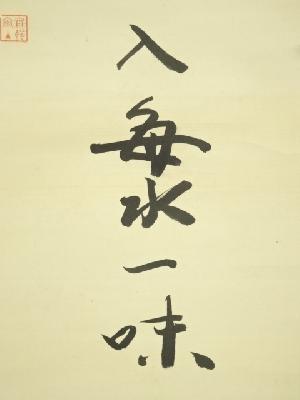 入海一味